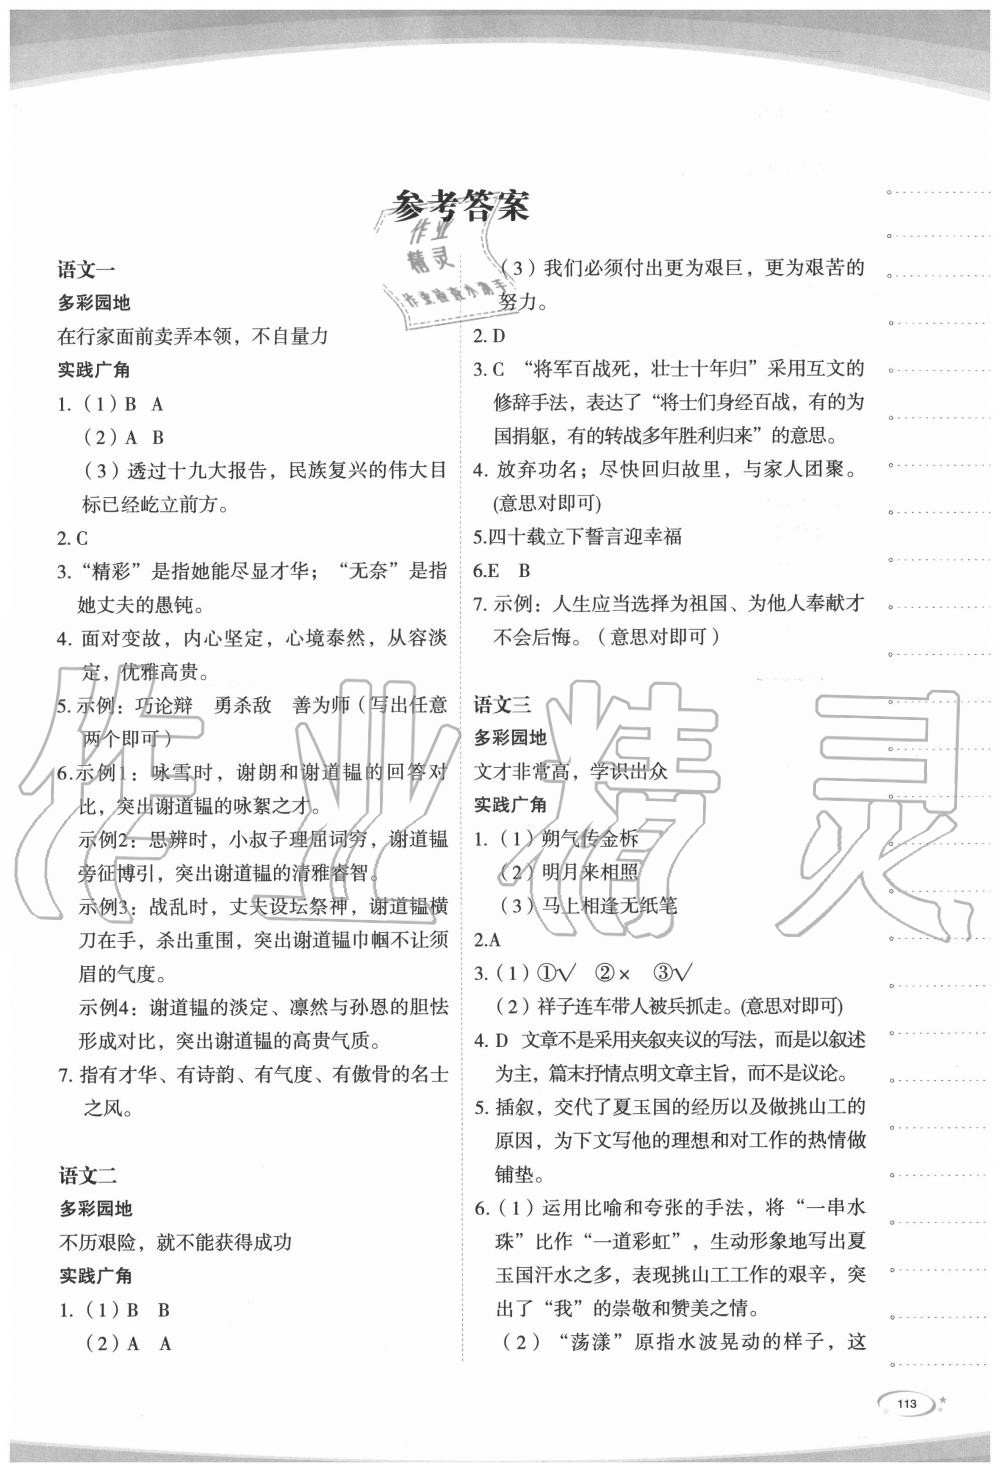 参考答案
作业
精灵
作业检查小助手
语文一
多彩园地
在行家面前卖弄本领，不自量力
实践广角
1.（1）B A
（2）A B
（3）透过十九大报告，民族复兴的伟大目
标已经屹立前方。
2. C
3. “精彩”是指她能尽显才华；“无奈”是指
她丈夫的愚钝。
4. 面对变故，内心坚定，心境泰然，从容淡
定，优雅高贵。
5. 示例：巧论辩 勇杀敌 善为师（写出任意
两个即可）
6.示例1：咏雪时，谢朗和谢道韫的回答对
比，突出谢道韫的咏絮之才。
示例2：思辨时，小叔子理屈词穷，谢道韫
旁征博引，突出谢道韫的清雅睿智。
示例3：战乱时，丈夫设坛祭神，谢道韫横
刀在手，杀出重围，突出谢道韫巾帼不让须
眉的气度。
示例4：谢道韫的淡定、凛然与孙恩的胆怯
形成对比，突出谢道韫的高贵气质。
7. 指有才华、有诗韵、有气度、有傲骨的名士
之风。
语文二
多彩园地
不历艰险，就不能获得成功
实践广角
1.（1）B B
（2）A A
（3）我们必须付出更为艰巨，更为艰苦的
努力。
2. D
3. C “将军百战死，壮士十年归”采用互文的
修辞手法，表达了“将士们身经百战，有的为
国捐躯，有的转战多年胜利归来”的意思。
4. 放弃功名；尽快回归故里，与家人团聚。
(意思对即可)
5.四十载立下誓言迎幸福
6.E B
7. 示例：人生应当选择为祖国、为他人奉献才
不会后悔。（意思对即可）
语文三
多彩园地
文才非常高，学识出众
实践广角
1.（1）朔气传金柝
（2）明月来相照
（3）马上相逢无纸笔
2.A
3.（1）①√ ②× ③√
（2）祥子连车带人被兵抓走。(意思对即可)
4. D 文章不是采用夹叙夹议的写法，而是以叙述
为主，篇末抒情点明文章主旨，而不是议论。
5. 插叙，交代了夏玉国的经历以及做挑山工的
原因，为下文写他的理想和对工作的热情做
铺垫。
6.（1）运用比喻和夸张的手法，将“一串水
珠”比作“一道彩虹”，生动形象地写出夏
玉国汗水之多，表现挑山工工作的艰辛，突
出了“我”的崇敬和赞美之情。
（2）“荡漾”原指水波晃动的样子，这
作业精灵
113